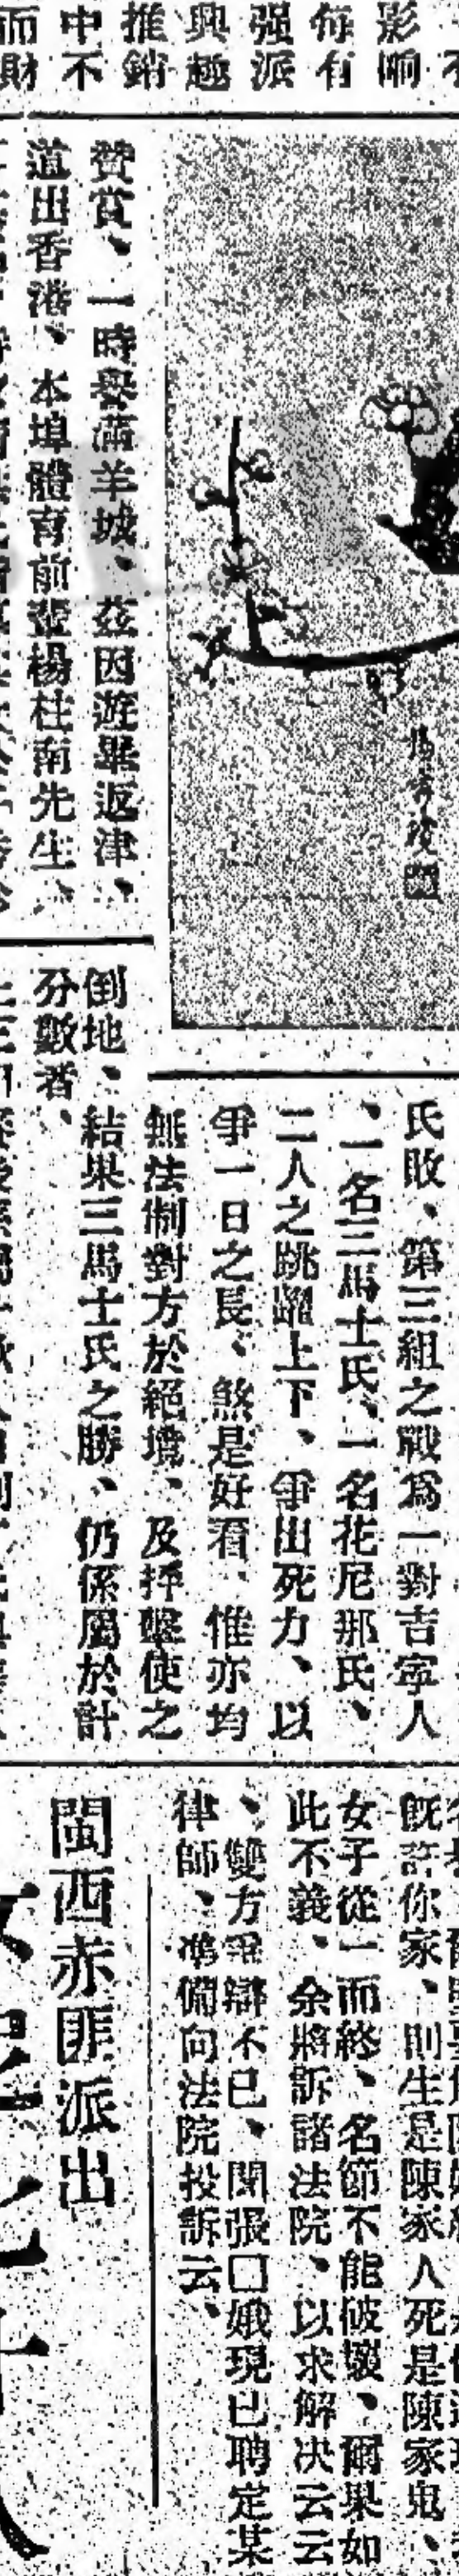 影响
每有
强派
興趣
推銷
中不
而財
贊賞、一時譽滿羊城、茲因遊畢返津、
道出香港、本埠體育前輩楊柱南先生、
氏敗、第三組之戰爲一對吉寧人
、一名三馬士氏、一名花尼那氏、
二人之跳躍上下、爭出死力、以
爭一日之長、煞是好看、惟亦均
無法制對方於絕境、及抨擊使之
倒地、結果三馬士氏之勝、仍係屬於計
分數者、
既許你家、則生是陳家人死是陳家鬼、
女子從一而終、名節不能破壞、爾果如
此不義、余將訴諸法院、以求解決云云
、雙方爭辯不已、聞張□娥現已聘定某
律師、準備向法院投訴云、
閩西赤匪派出